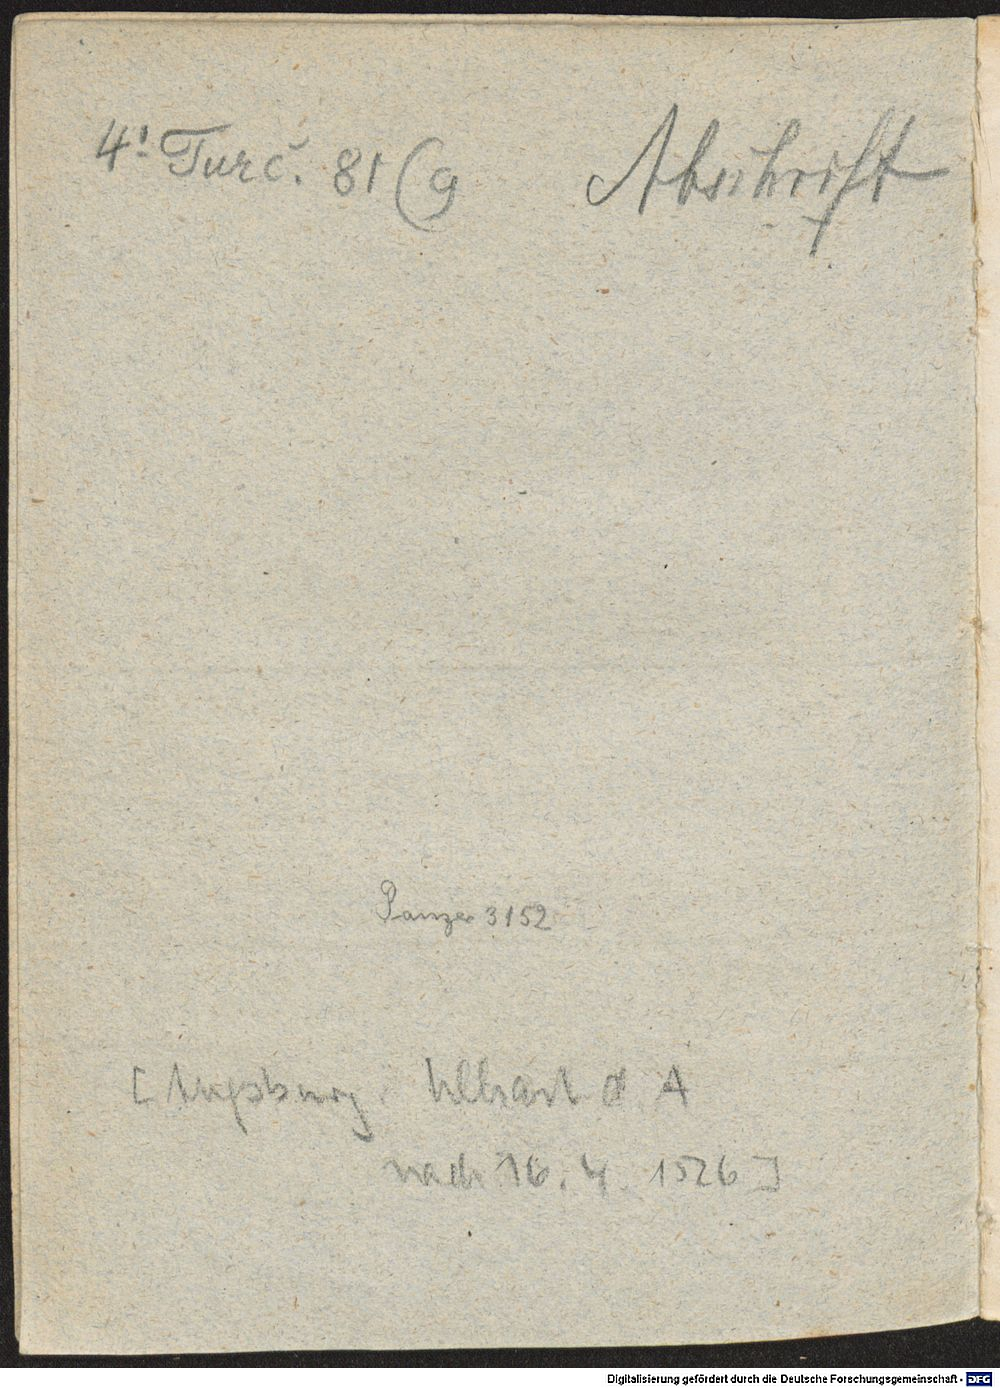 4° Turc. 81(9 Abschrift
Panzer 3152
[Augsburg: Ulhart d Ä
nach 16. 4. 1526]
Digitalisierung gefördert durch die Deutsche Forschungsgemeinschaft - DFG